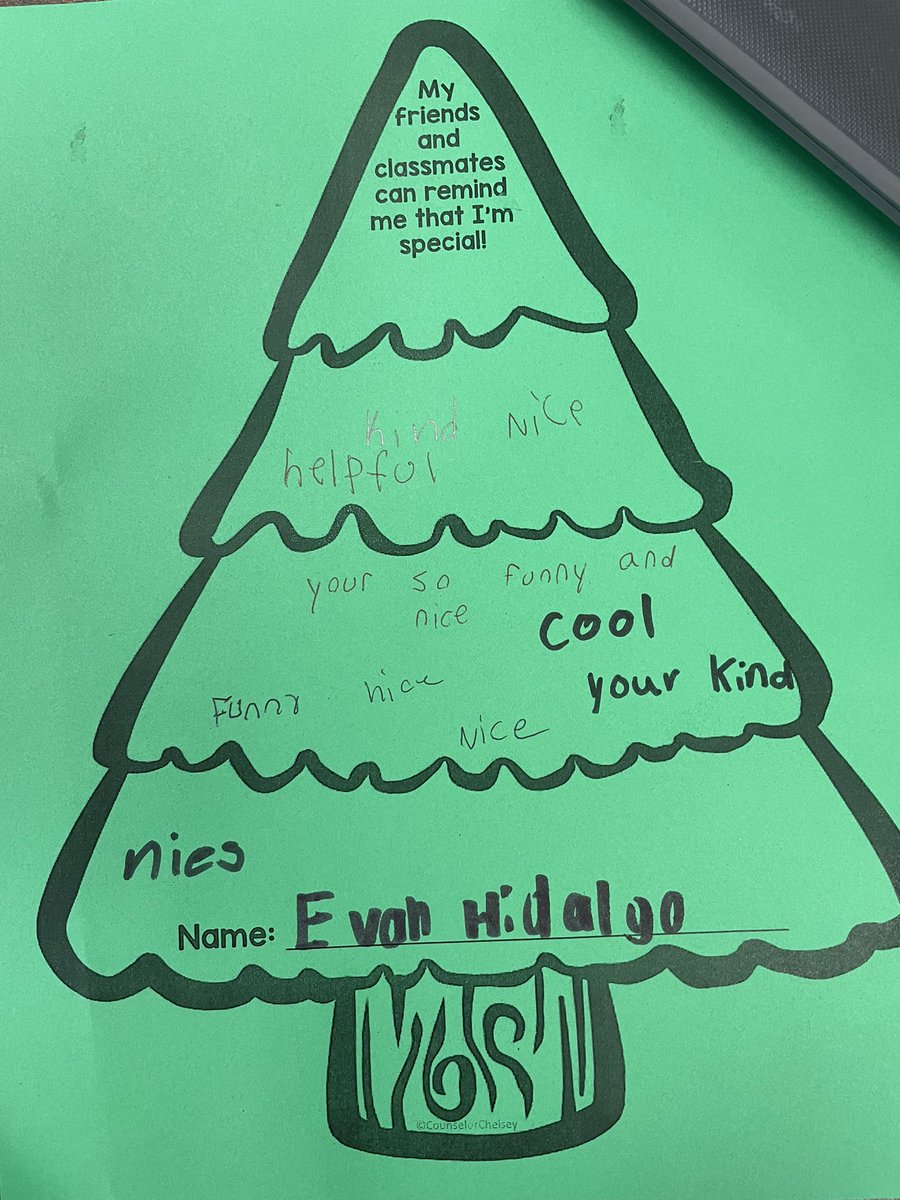 My
friends
and
classmates
can remind
me that I'm
special!
kind nice
helpful
your so funny and
nice
cool
your kind
Funny nice
Nice
nies
Name: Evan Hidalgo
©CounselorChelsey